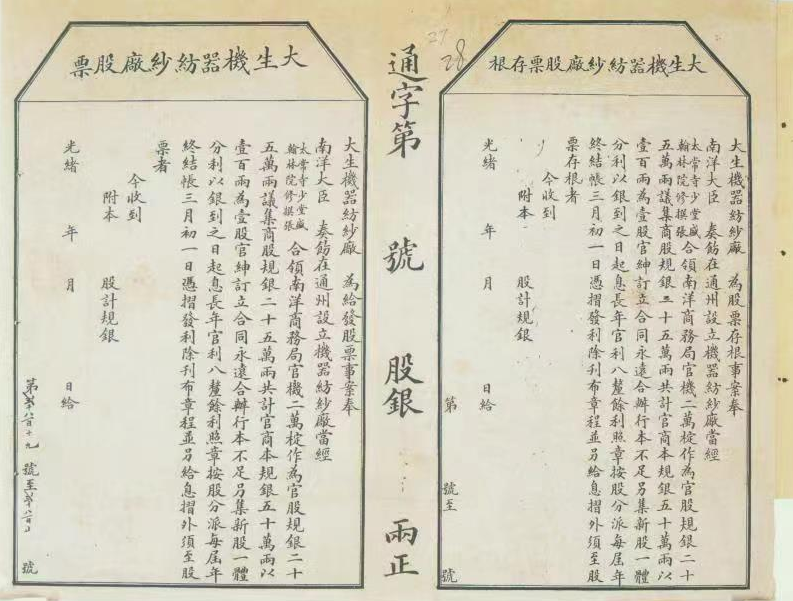 大生機器紡紗廠股票存根
大生機器紡紗廠 為股票存根事案奉
南洋大臣 奏飭在通州設立機器紡紗廠當經
太常寺少堂盛
翰林院修撰張
合領南洋商務局官機二萬椗作為官股規銀二十
五萬兩議集商股規銀二十五萬兩共計官商本規銀五十萬兩以
壹百兩為壹股官紳訂立合同永遠合辦行本不足另集新股一體
分利以銀到之日起息長年官利八釐餘利照章按股分派每屆年
終結帳三月初一日憑摺發利除刊布章程並另給息摺外須至股
票存根者
今收到
附本 股計規銀
光緒 年 月 日給
第 號至 號
27
28
通字第 號 股銀 兩正
大生機器紡紗廠股票
大生機器紡紗廠 為給發股票事案奉
南洋大臣 奏飭在通州設立機器紡紗廠當經
太常寺少堂盛
翰林院修撰張
合領南洋商務局官機二萬椗作為官股規銀二十
五萬兩議集商股規銀二十五萬兩共計官商本規銀五十萬兩以
壹百兩為壹股官紳訂立合同永遠合辦行本不足另集新股一體
分利以銀到之日起息長年官利八釐餘利照章按股分派每屆年
終結帳三月初一日憑摺發利除刊布章程並另給息摺外須至股
票者
今收到
附本 股計規銀
光緒 年 月 日給
第 百十九 號至 號